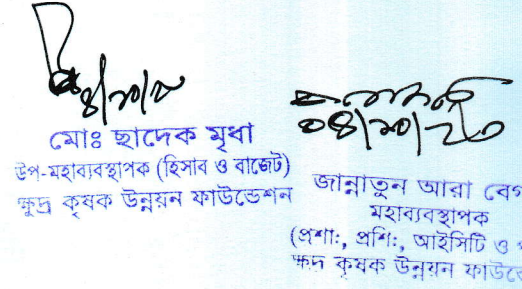 ৪/১০/২
মোঃ ছাদেক মৃধা
উপ-মহাব্যবস্থাপক (হিসাব ও বাজেট)
ক্ষুদ্র কৃষক উন্নয়ন ফাউন্ডেশন
০৪/১০/২০
জান্নাতুন আরা বেগ
মহাব্যবস্থাপক
(প্রশাঃ, প্রশিঃ, আইসিটি ও
ক্ষুদ্র কৃষক উন্নয়ন ফাউন্ডে